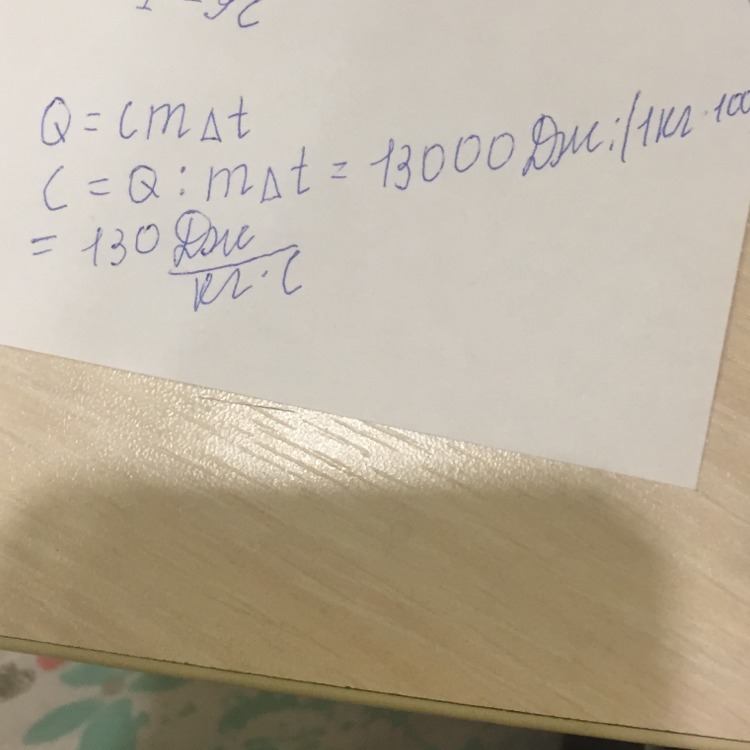 Q = cm∆t
C = Q : m∆t = 13000 Дж : (1кг · 100
= 130 Дж
кг · С